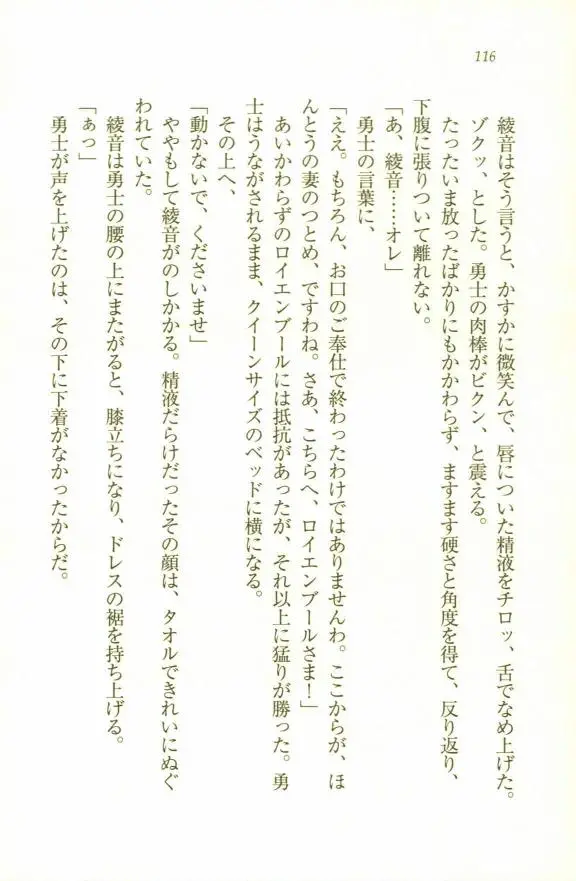 116
綾音はそう言うと、かすかに微笑んで、唇についた精液をチロッ、舌でなめ上げた。
ゾクッ、とした。勇士の肉棒がビクン、と震える。
たったいま放ったばかりにもかかわらず、ますます硬さと角度を得て、反り返り、
下腹に張りついて離れない。
「あ、綾音……オレ」
勇士の言葉に、
「ええ。もちろん、お口のご奉仕で終わったわけではありませんわ。ここからが、ほ
んとうの妻のつとめ、ですわね。さあ、こちらへ、ロイエンブールさま！」
あいかわらずのロイエンブールには抵抗があったが、それ以上に猛りが勝った。勇
士はうながされるまま、クイーンサイズのベッドに横になる。
その上へ、
「動かないで、くださいませ」
ややもして綾音がのしかかる。精液だらけだったその顔は、タオルできれいにぬぐ
われていた。
綾音は勇士の腰の上にまたがると、膝立ちになり、ドレスの裾を持ち上げる。
「ぁっ」
勇士が声を上げたのは、その下に下着がなかったからだ。